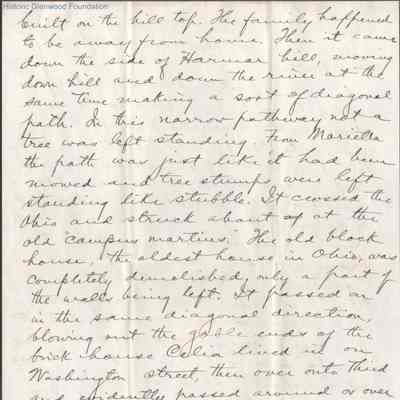 Historic Glenwood Foundation
built on the hill top. The family happened
to be away from home. Then it came
down the side of Harmar hill, moving
down hill and down the river at the
same time making a sort of diagonal
path. In this narrow pathway not a
tree was left standing. From Marietta
the path was just like it had been
mowed and tree stumps were left
standing like stubble. It crossed the
Ohio and struck about at the
old "campus martius." The old block
house, the oldest house in Ohio, was
completely demolished, only a part of
the walls being left. It passed on
in the same diagonal direction,
blowing out the gable ends of the
brick house Celia lived in on
Washington street, then over onto Third
and evidently passed around or over